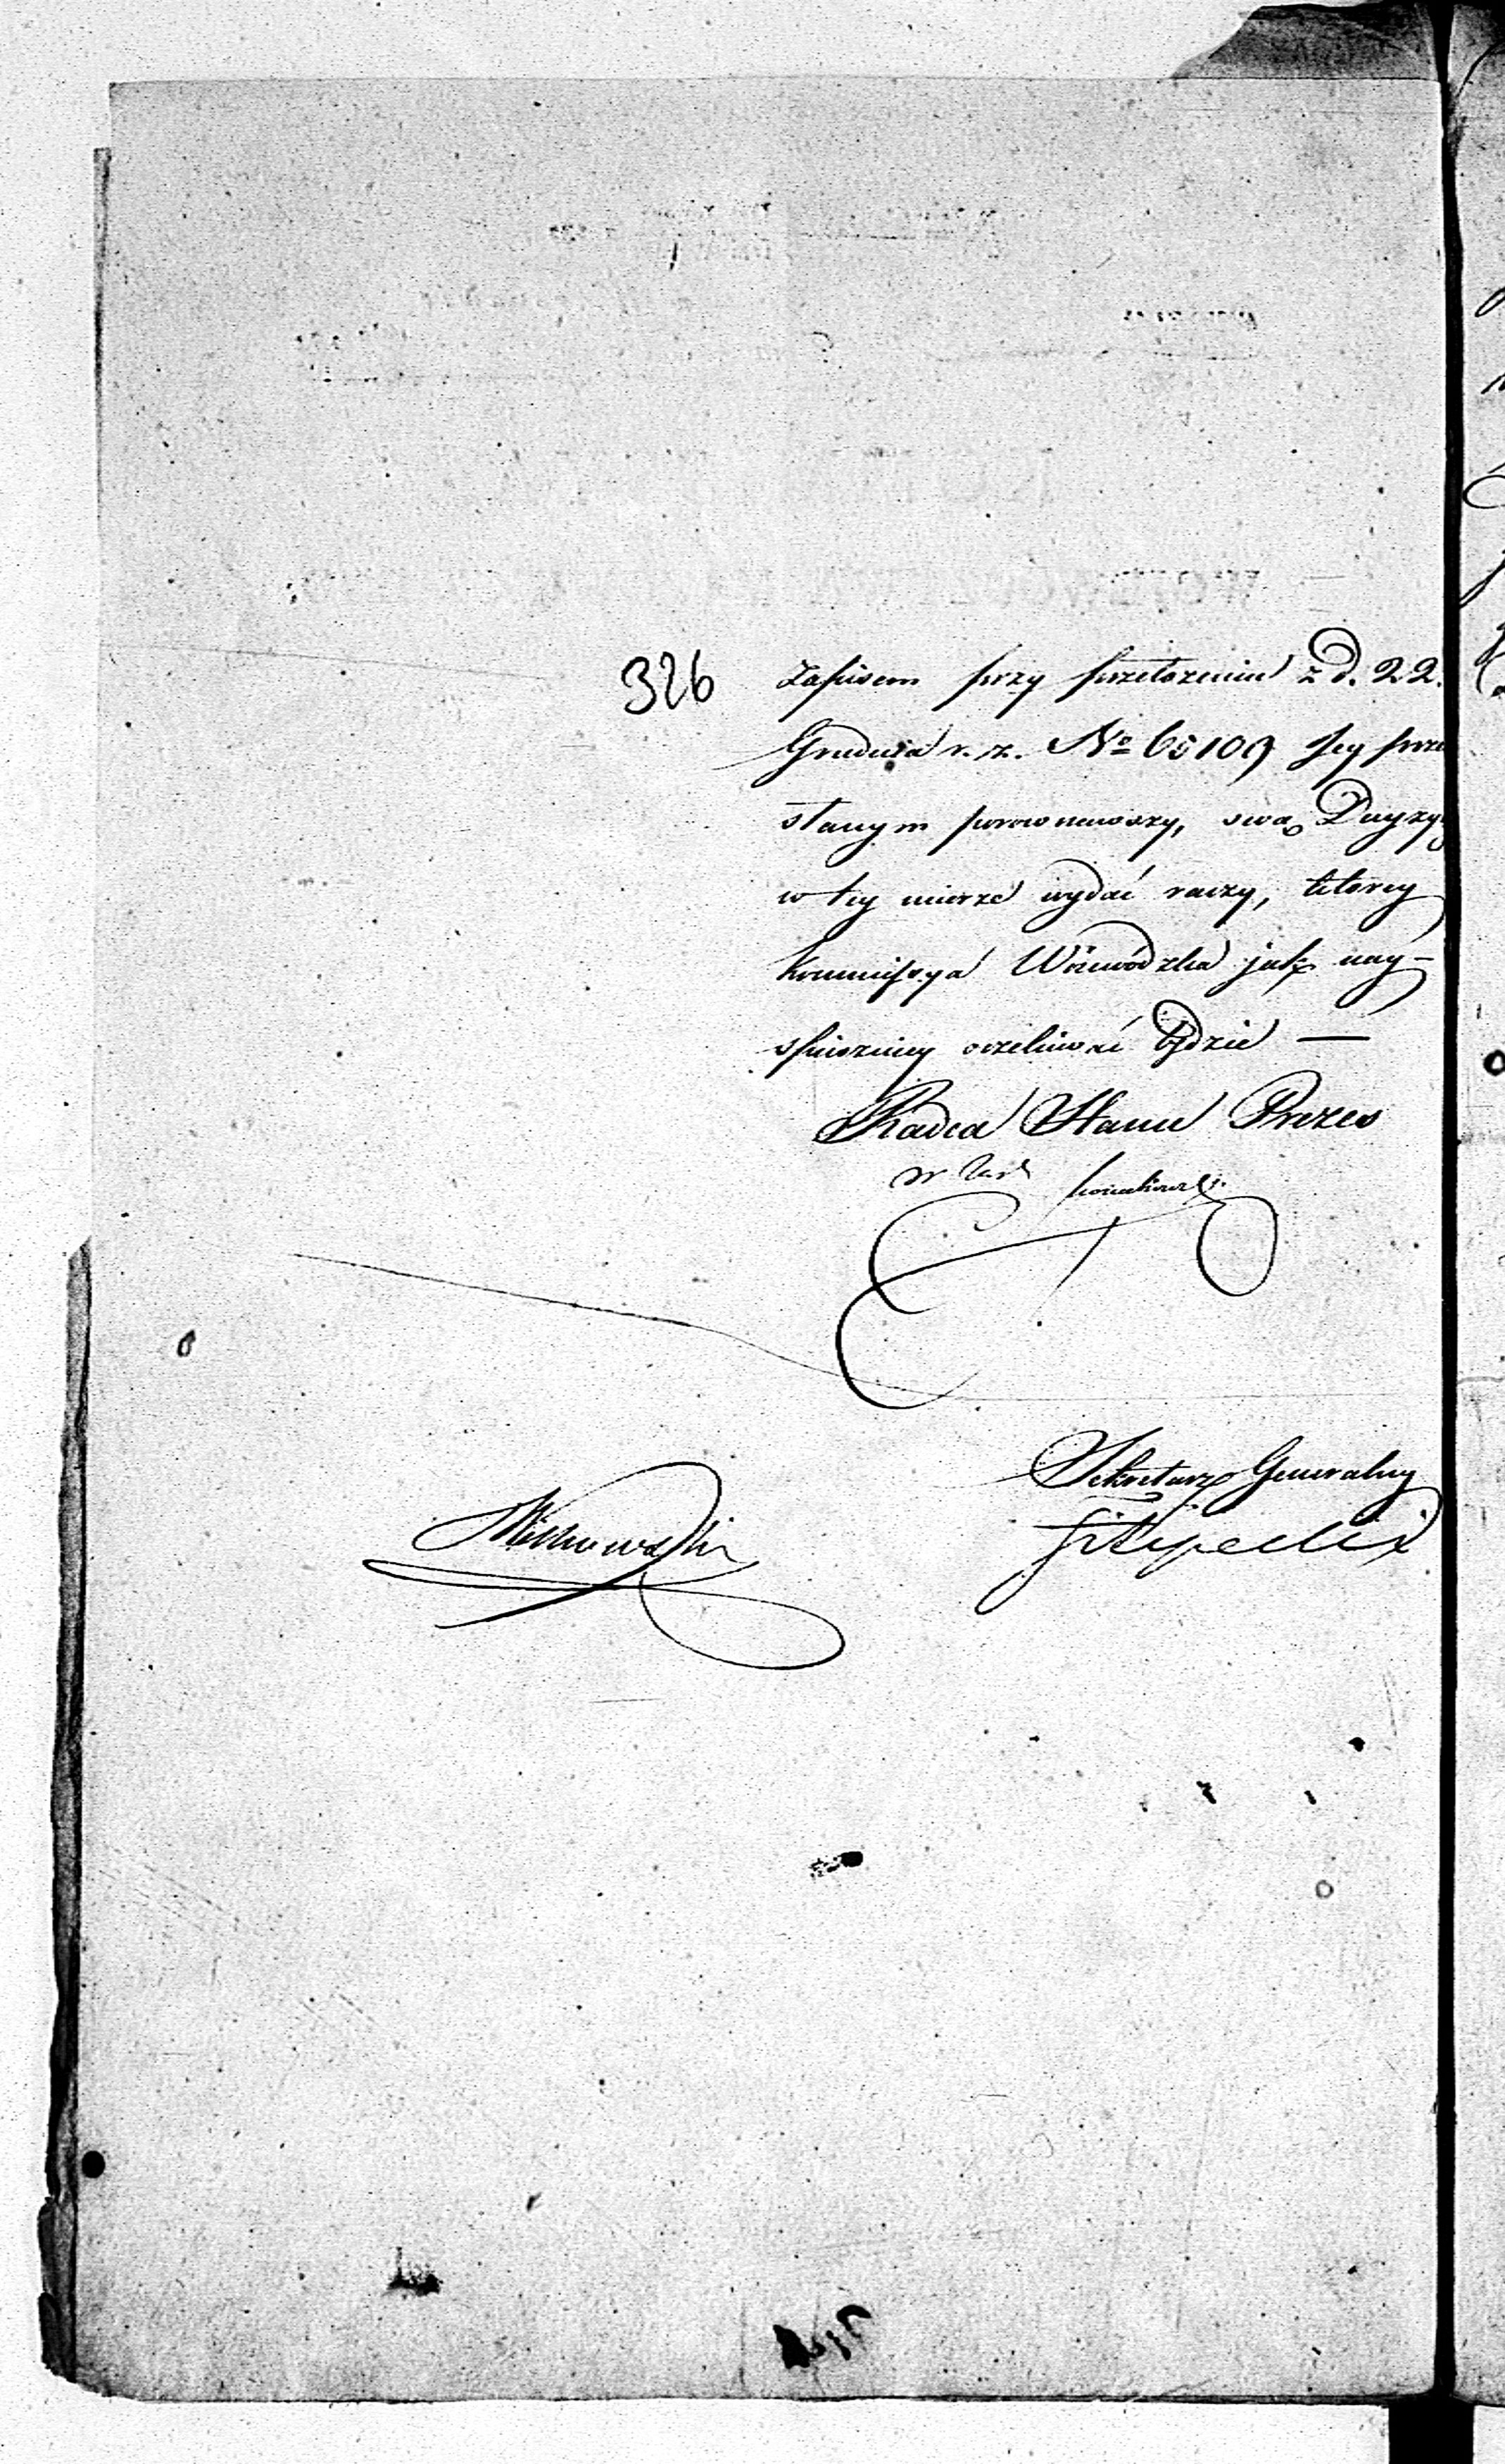 326
zapisem przy przełożeniu z d. 22.
Grudnia r. z. No 65109 Jey prze
słanym porownawszy, swą Decyzyą
w tey mierze wydać raczy, którey
Kommissya Woiewódzka jak nay-
spieszniey oczekiwać będzie —
Radca Stanu Prezes
w Zast
Sekretarz Generalny
Filipecki